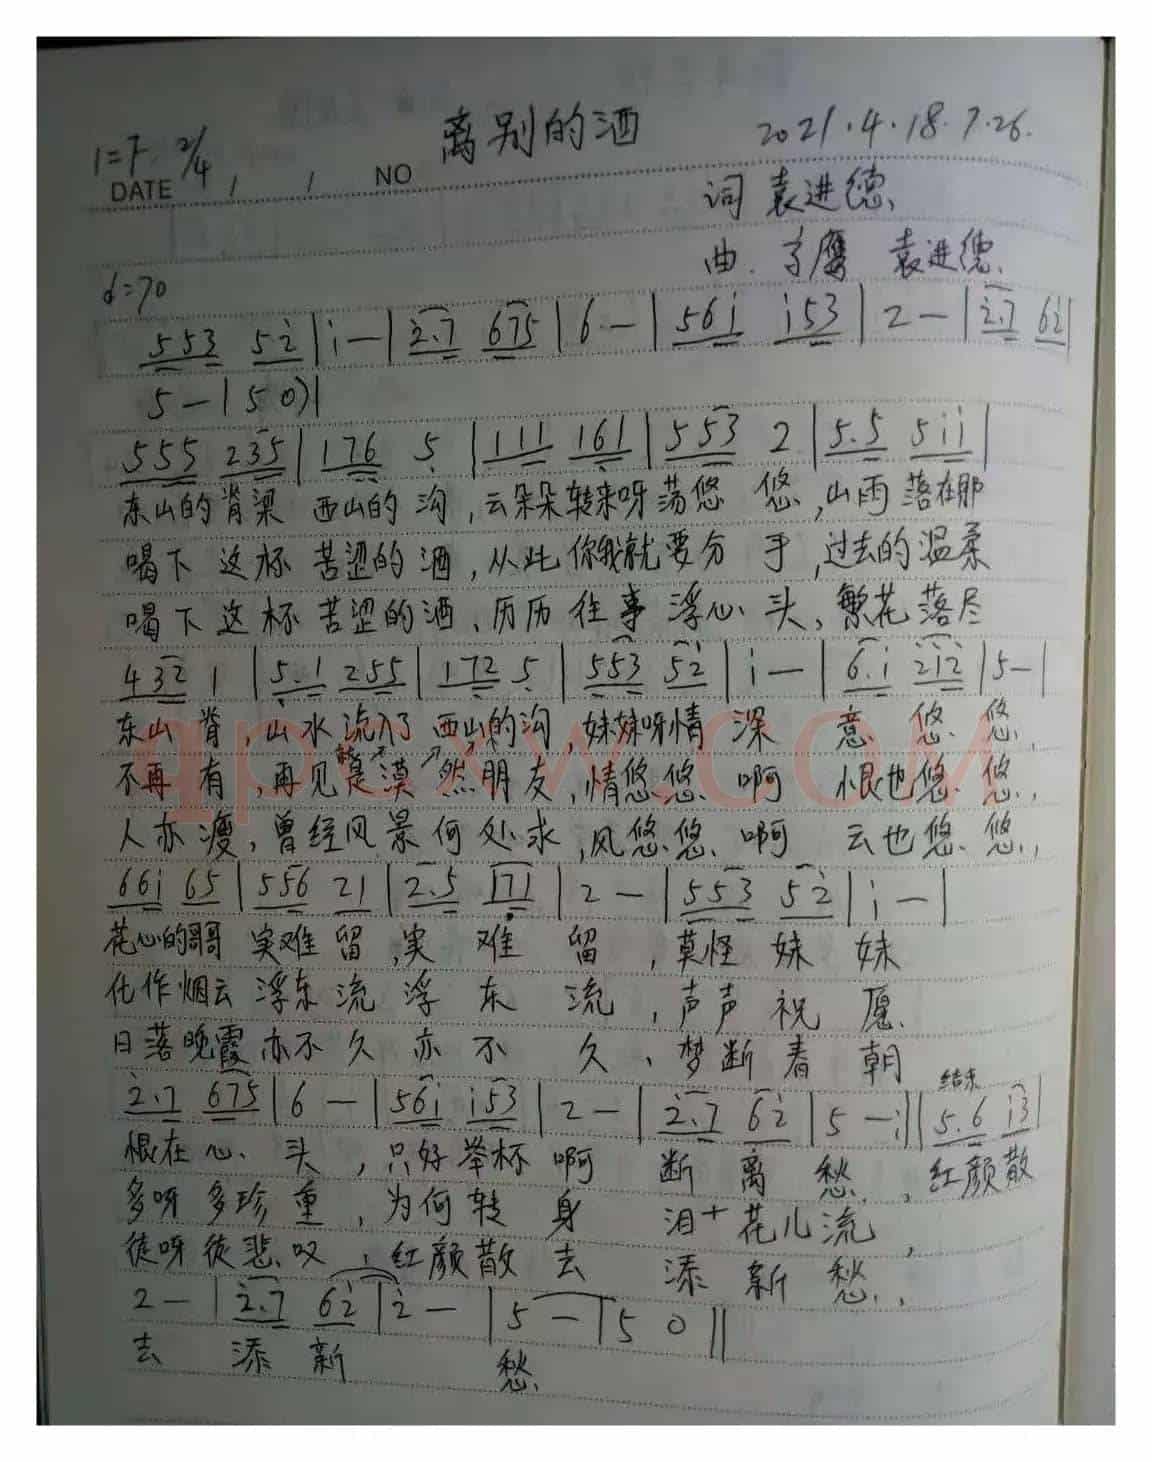 离别的酒 2021.4.18.7.26.
1=F 2/4
DATE / / NO
词 袁进德
曲. 袁进德.
♩=70
553 52̇ | 1̇ — | 2̇.7 675 | 6 — | 561̇ 1̇53 | 2 — | 2̇.7 62̇ |
5 — | 5 0) |
555 235 | 176 5 | 111 161 | 553 2 | 5.5 51̇1̇ |
东山的脊梁 西山的沟,云朵朵转来呀荡悠 悠,山雨落在那
喝下这杯苦涩的酒,从此你我就要分手,过去的温柔
喝下这杯苦涩的酒、历历往事浮心头,繁花落尽
432 1 | 5.1 255 | 172 5 | 553 52̇ | 1̇ — | 6.1̇ 2̇1̇2̇ | 5 — |
东山脊,山水流入了西山的沟,妹妹呀情深 意悠悠,
不再有,再见是漠然朋友,情悠悠啊 恨也悠悠,
人亦瘦,曾经风景何处求,风悠悠啊 云也悠悠,
661̇ 65 | 556 21 | 2.5 171 | 2 — | 553 52̇ | 1̇ — |
花心的哥哥 实难留,实难留,莫怪妹妹
化作烟云浮东流浮东流,声声祝愿
日落晚霞亦不久亦不久、梦断春朝
2̇.7 675 | 6 — | 561̇ 1̇53 | 2 — | 2̇.7 62̇ | 5 — :|| 结束 5.6 1̇3 |
恨在心头,只好举杯啊 断离愁,红颜散
多呀多珍重,为何转身 泪+花儿流,
徒呀徒悲叹,红颜散去 添新愁,
2 — | 2̇.7 62̇ | 2̇ — | 5 — | 5 0 ||
去 添新 愁
qpcxw.com